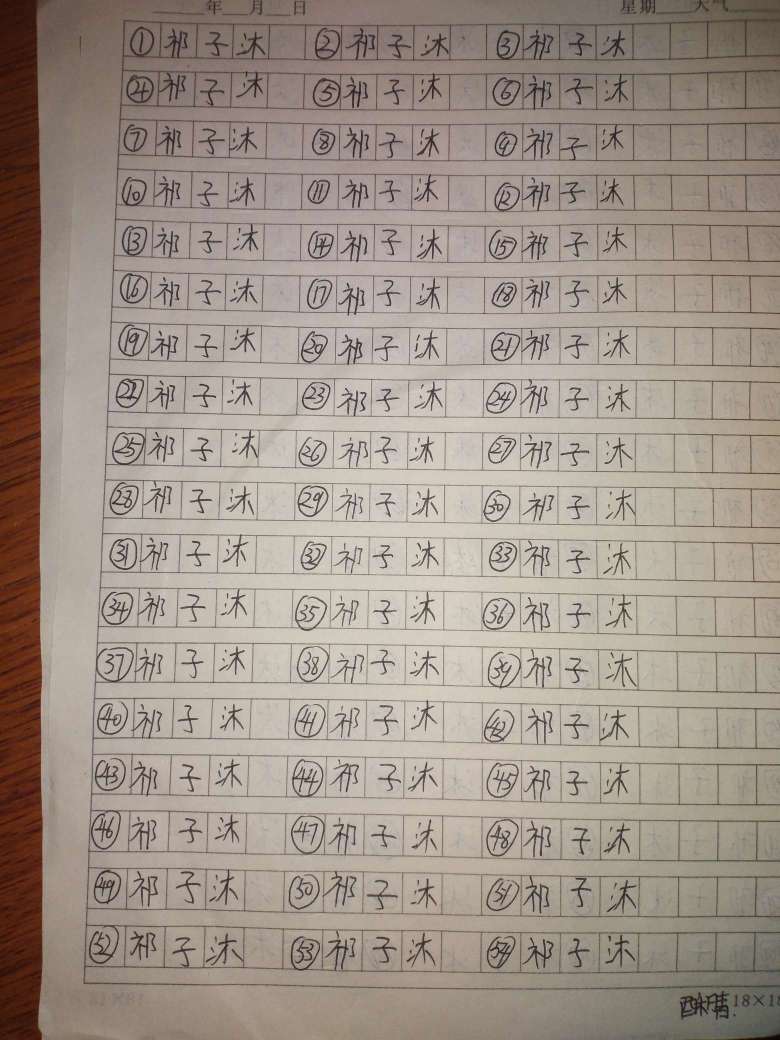 年 月 日 星期 天气
① 祁子沐 ② 祁子沐 ③ 祁子沐
④ 祁子沐 ⑤ 祁子沐 ⑥ 祁子沐
⑦ 祁子沐 ⑧ 祁子沐 ⑨ 祁子沐
⑩ 祁子沐 ⑪ 祁子沐 ⑫ 祁子沐
⑬ 祁子沐 ⑭ 祁子沐 ⑮ 祁子沐
⑯ 祁子沐 ⑰ 祁子沐 ⑱ 祁子沐
⑲ 祁子沐 ⑳ 祁子沐 ㉑ 祁子沐
㉒ 祁子沐 ㉓ 祁子沐 ㉔ 祁子沐
㉕ 祁子沐 ㉖ 祁子沐 ㉗ 祁子沐
㉘ 祁子沐 ㉙ 祁子沐 ㉚ 祁子沐
㉛ 祁子沐 ㉜ 祁子沐 ㉝ 祁子沐
㉞ 祁子沐 ㉟ 祁子沐 ㊱ 祁子沐
㊲ 祁子沐 ㊳ 祁子沐 ㊴ 祁子沐
㊵ 祁子沐 ㊶ 祁子沐 ㊷ 祁子沐
㊸ 祁子沐 ㊹ 祁子沐 ㊺ 祁子沐
㊻ 祁子沐 ㊼ 祁子沐 ㊽ 祁子沐
㊾ 祁子沐 ㊿ 祁子沐 51 祁子沐
52 祁子沐 53 祁子沐 54 祁子沐
18×18